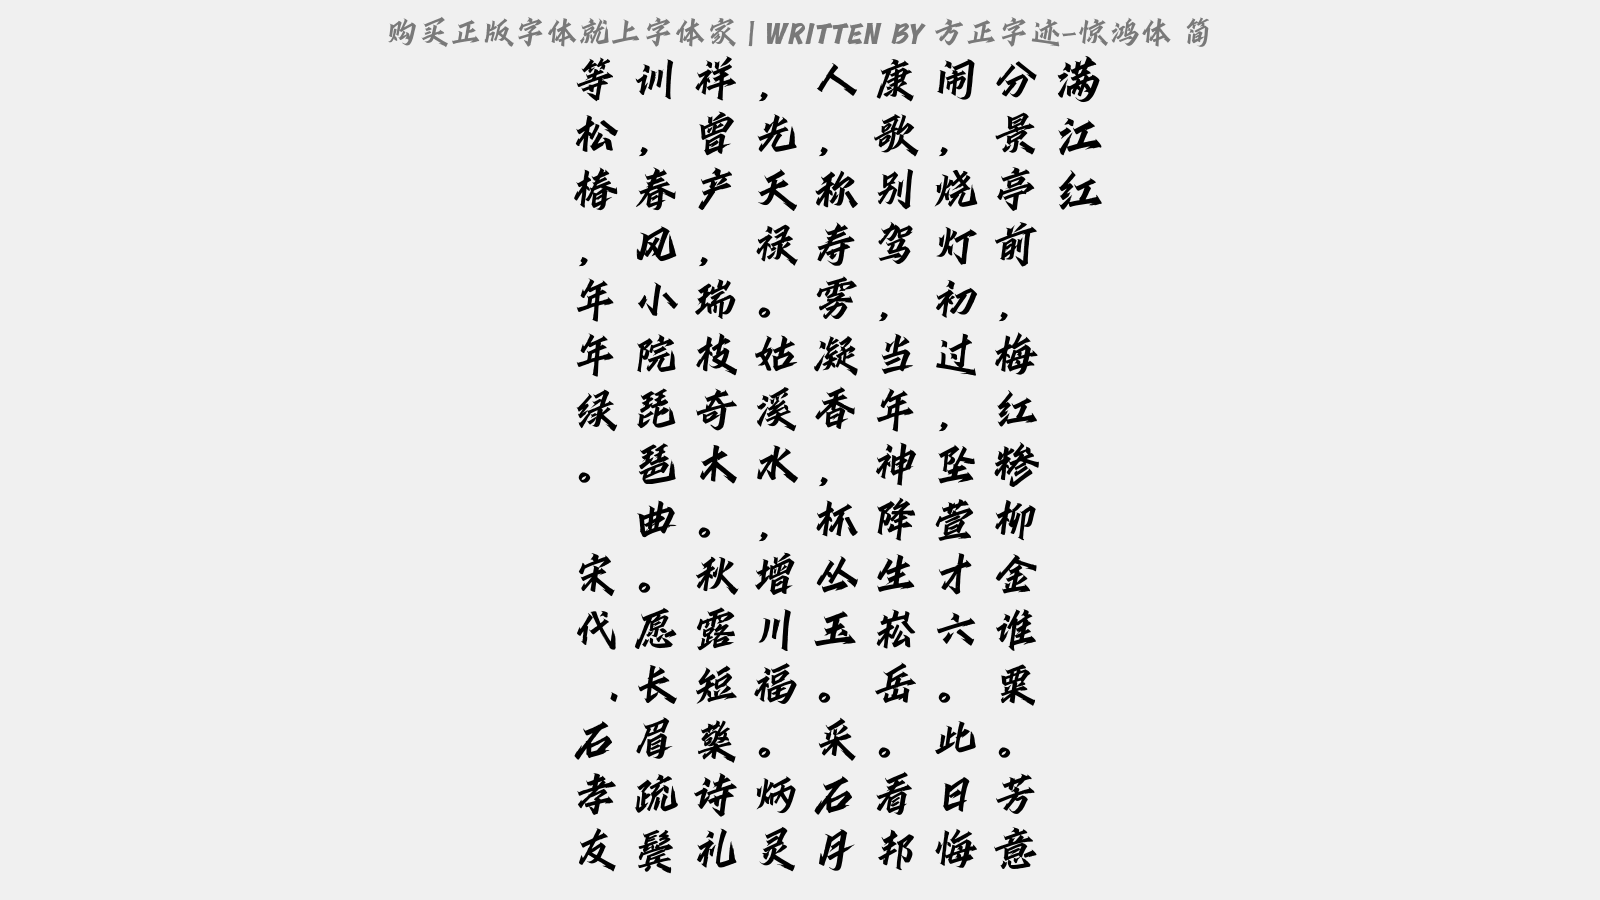 购买正版字体就上字体家 | WRITTEN BY 方正字迹-惊鸿体 简
满江红
分景亭前，梅红糁柳金谁粟。芳意
闹，烧灯初过，坠萱才六。此日悔
康歌别驾，当年神降生崧岳。看邦
人，称寿雾凝香，杯丛玉。采石月
，光天禄。姑溪水，增川福。炳灵
祥曾产，瑞枝奇木。秋露短檠诗礼
训，春风小院琵琶曲。愿长眉疏鬓
等松椿，年年绿。 宋代.石孝友